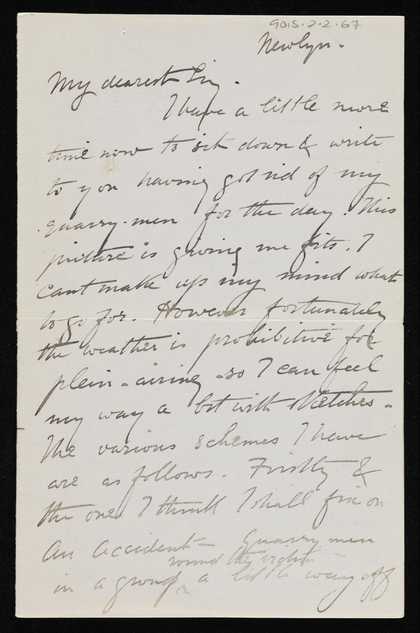 9015-2-2-67
Newlyn.
My dearest Liz.
I have a little more
time now to sit down & write
to you having got rid of my
quarry-men for the day. This
picture is giving me fits. I
cant make up my mind what
to go for. However fortunately
the weather is prohibitive for
plein-airing - so I can feel
my way a bit with sketches -
The various schemes I have
are as follows. Firstly &
the one I think I shall fix on
an accident - Quarry men
round the
in a group a little way off